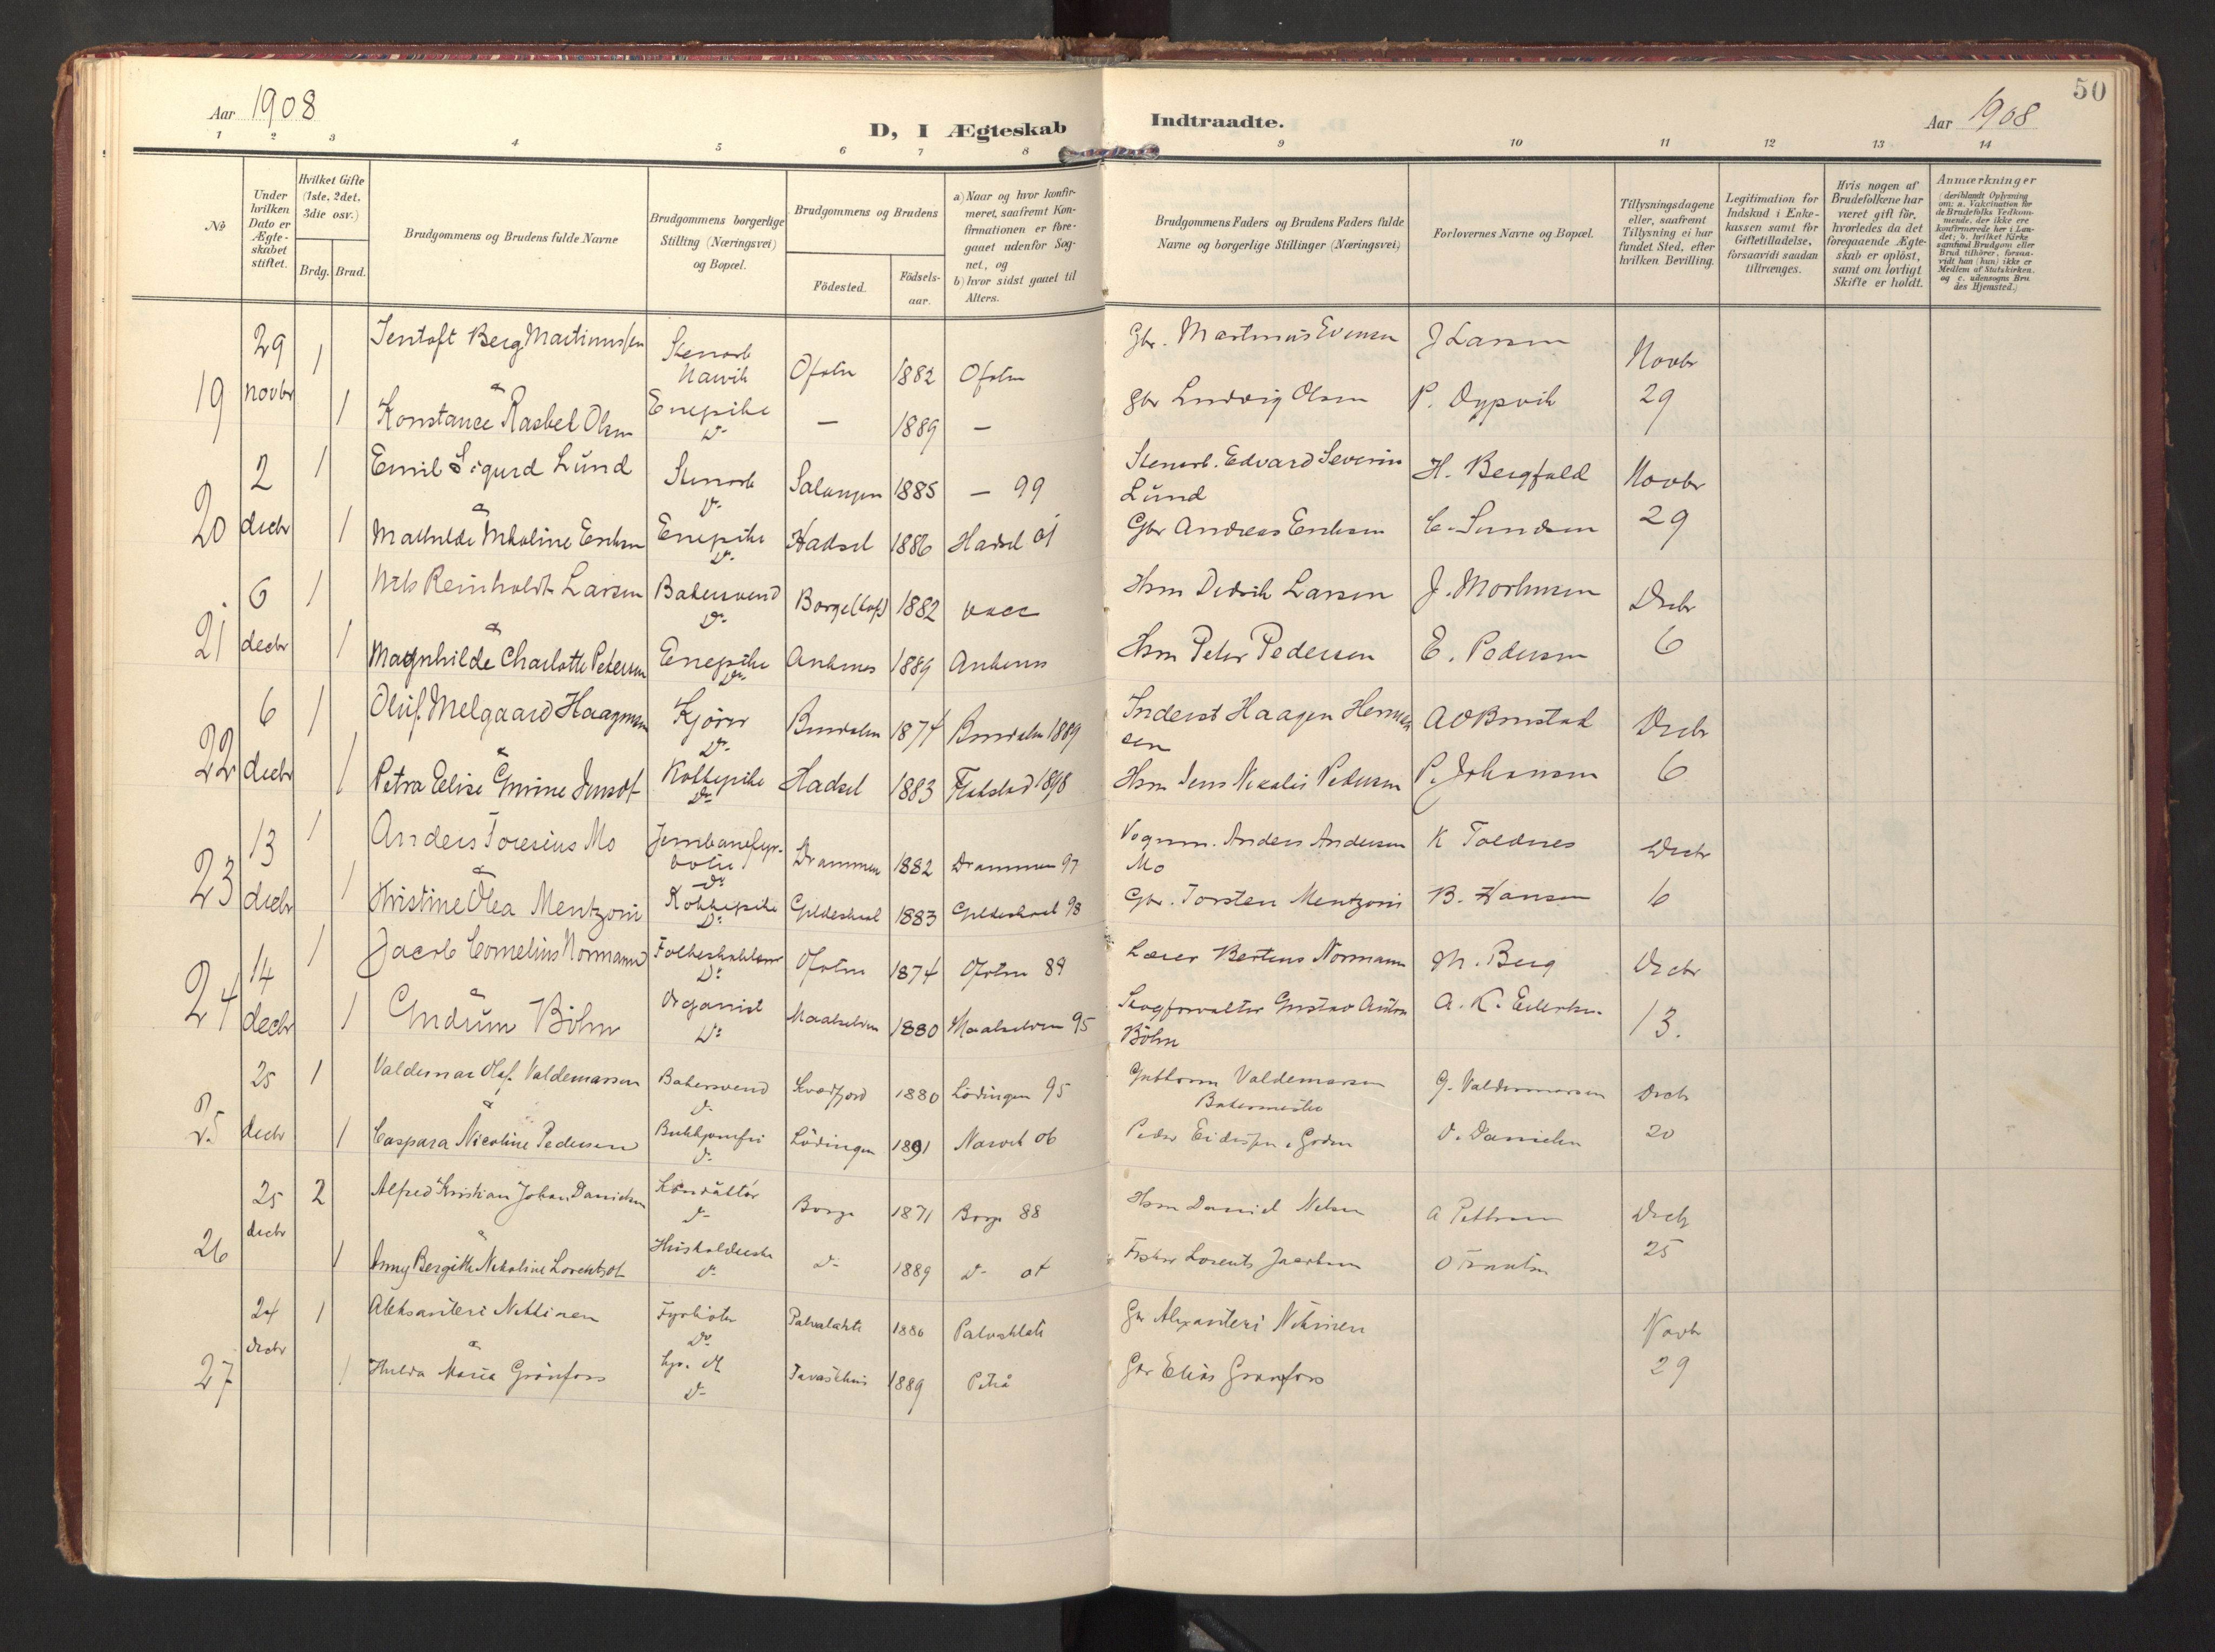 Aar 1908
D, I Ægteskab
Indtraadte.
Aar 1908
50
1 2 3 4 5 6 7 8 9 10 11 12 13 14
No
Under hvilken Dato er Ægteskabet stiftet.
Hvilket Gifte (1ste, 2det, 3die osv.)
Brdg. Brud.
Brudgommens og Brudens fulde Navne
Brudgommens borgerlige Stilling (Næringsvei) og Bopæl.
Brudgommens og Brudens
Födested.
Födsels-aar.
a) Naar og hvor konfirmeret, saafremt Konfirmationen er foregaaet udenfor Sognet, og
b) hvor sidst gaaet til Alters.
Brudgommens Faders og Brudens Faders fulde Navne og borgerlige Stillinger (Næringsvei)
Forlovernes Navne og Bopæl.
Tillysningsdagene eller, saafremt Tillysning ei har fundet Sted, efter hvilken Bevilling.
Legitimation for Indskud i Enkekassen samt for Giftetilladelse, forsaavidt saadan tiltrænges.
Hvis nogen af Brudefolkene har været gift för, hvorledes da det foregaaende Ægteskab er oplöst, samt om lovligt Skifte er holdt.
Anmærkninger
(deriblandt Oplysning om: a. Vakcination for de Brudefolks Vedkommende, der ikke ere konfirmerede her i Landet; b. hvilket Kirkesamfund Brudgom eller Brud tilhörer, forsaavidt han (hun) ikke er Medlem af Statskirken, og c. udensogns Brudes Hjemsted.)
19 29 novbr 1 Jentoft Berg Martinussen Stenarb Narvik Ofoten 1882 Ofoten Gbr. Martinus Evensen J Larsen Novbr
&
1 Konstance Rasbel Olsen Enepike d- — 1889 — Gbr Ludvig Olsen P. Dypvik 29
20 2 decbr 1 Emil Sigurd Lund Stenarb d- Salangen 1885 — 99 Stenarb. Edvard Severin Lund H. Bergfald Novbr
&
1 Mathilde Nikoline Eriksen Enepike d- Hadsel 1886 Hadsel 01 Gbr Andreas Eriksen 29
21 6 decbr 1 Nils Reinholdt Larsen Bakersvend d- Borge (Lof) 1882 vacc Hsm Didrik Larsen Decbr
&
1 Magnhilde Charlotte Petersen Enepike d- Ankenes 1889 Ankenes Hsm Peter Pedersen E. Pedersen 6
22 6 decbr 1 Oluf Melgaard Haagensen Kjörer d- 1874 1889 Inderst Haagen Hermansen Decbr
&
1 Petra Elise Jensdt Kokkepike d- Hadsel 1883 Flakstad 1898 Hsm Jens Nikolai Pedersen P. Johansen 6
23 13 decbr 1 Anders Toresius Mo Jernbanefyrböter d- Drammen 1882 Drammen 97 Vognm. Anders Andersen Mo K Toldnes Decbr
&
1 Kristine Olea Mentzoni Kokkepike d- Gildeskaal 1883 Gildeskaal 98 Gbr. Torsten Mentzoni B. Hansen 6
24 14 decbr 1 Jacob Cornelius Normann d- Ofoten 1874 Ofoten 89 Lærer Berteus Normann M. Berg Decbr
&
1 Gudrun Böhn Organist d- Maalselven 1880 Maalselven 95 Skogforvalter Gustav Anton Böhn A. K. 13.
25 25 decbr 1 Valdemar Olaf Valdemarsen Bakersvend d- Kvædfjord 1880 Lödingen 95 Guttorm Valdemarsen Bakermester G. Valdemarsen Decbr
&
1 Caspara Nicoline Pedersen d- Lödingen 1891 Narvik 06 Peder Eidissen D. Danielsen 20
26 25 decbr 2 Alfred Kristian Johan Danielsen Konduktör d- Borge 1871 Borge 88 Hsm Daniel Nilsen A Decbr
&
1 Jenny Bergitte Nikoline Lorentsdt Husholderske d- d- 1889 d- 04 Fisker Lorents Jacobsen 25
27 24 decbr 1 Aleksanteri Nikkinen Fyrböter d- Palvalahti 1886 Palvahlati Gbr Alexanteri Nikinen Novbr
&
1 Hulda Maria Grönfors d- Tavastehus 1889 Piteå Gbr Elias Granfors 29